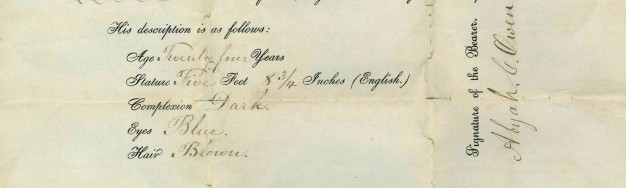 His description is as follows:
Age Twenty four Years
Stature Five Feet 8 3/4 Inches (English.)
Complexion Dark.
Eyes Blue.
Hair Brown.
Signature of the Bearer.
Abijah C. Owen